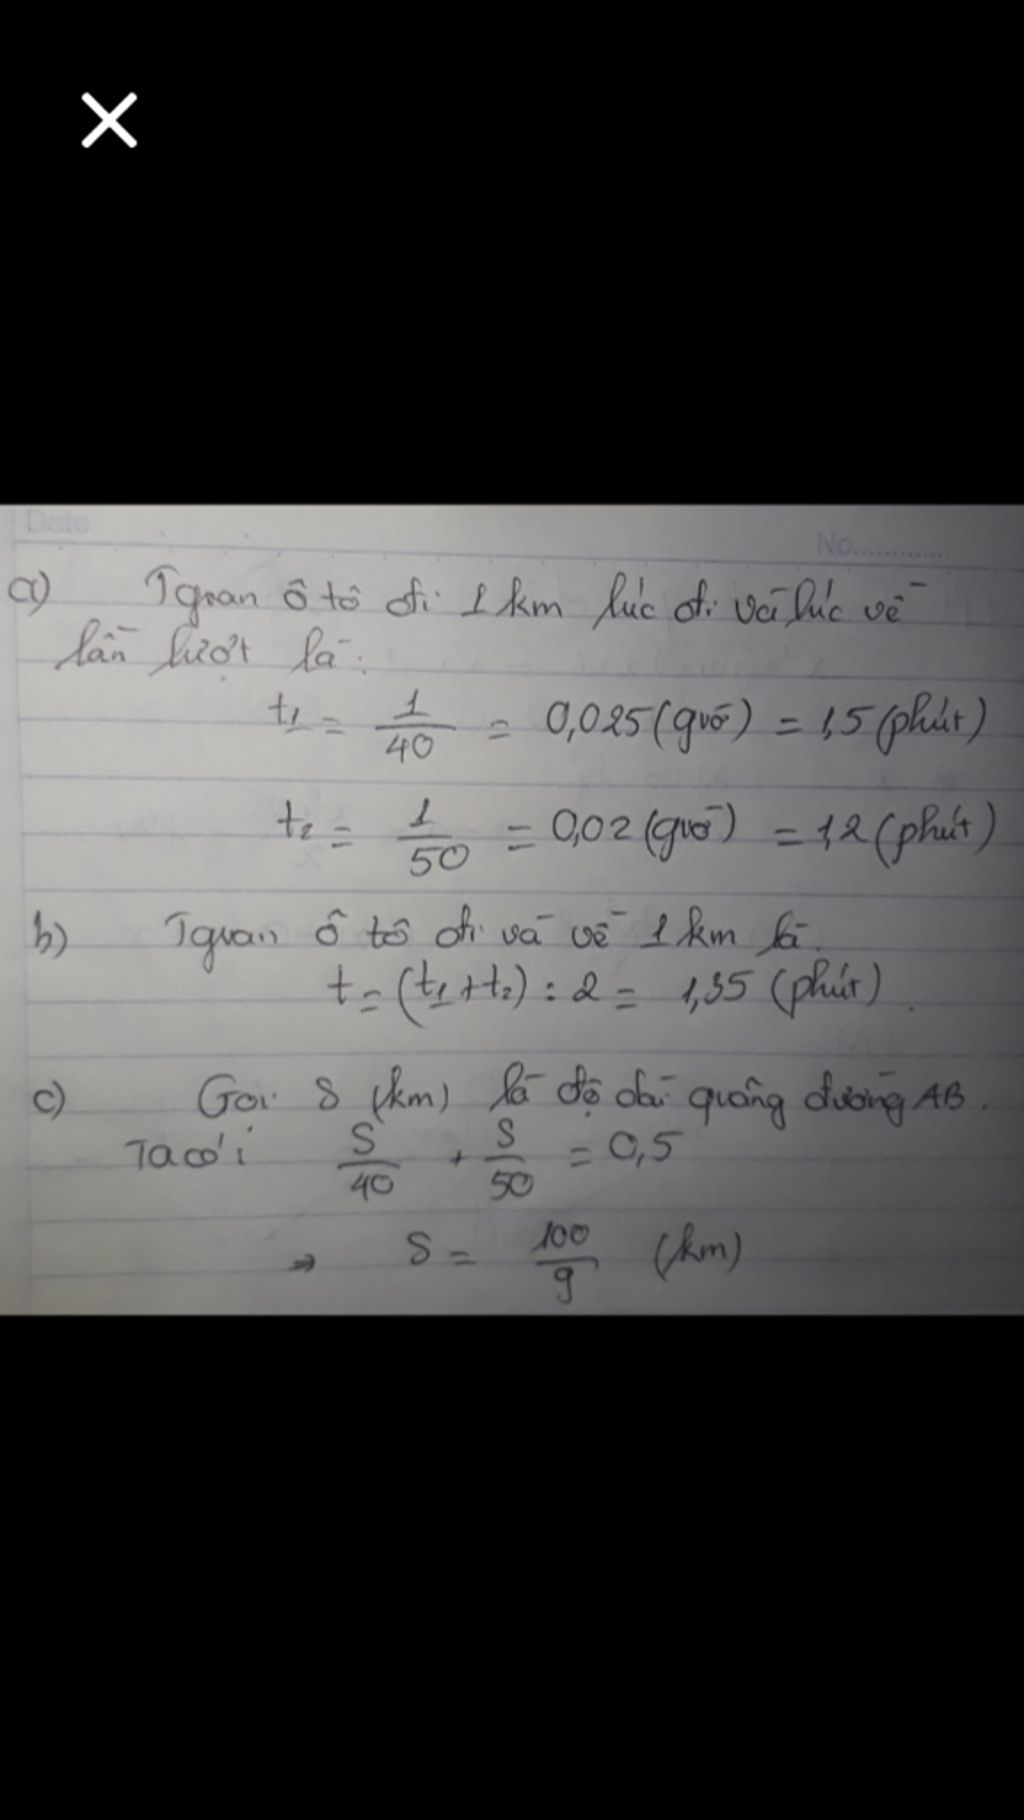 Date
No.............
a) Tgian ô tô đi 1 km lúc đi và lúc về
lần lượt là:
t₁ = 1/40 = 0,025 (giờ) = 1,5 (phút)
t₂ = 1/50 = 0,02 (giờ) = 1,2 (phút)
b) Tgian ô tô đi và về 1 km là.
t = (t₁ + t₂) : 2 = 1,35 (phút).
c) Gọi S (km) là độ dài quãng đường AB.
Ta có: S/40 + S/50 = 0,5
→ S = 100/9 (km)